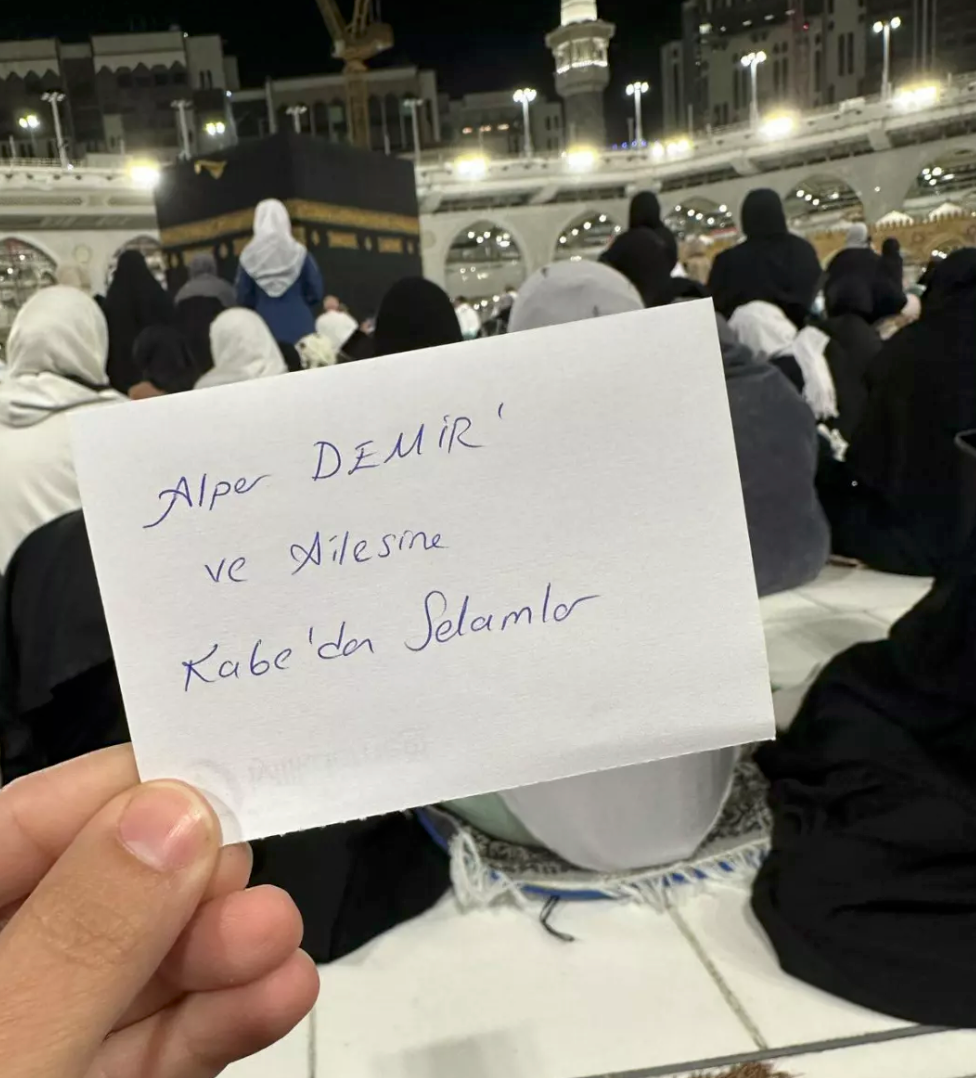 Alper DEMİR'
ve Ailesine
Kabe'den Selamlar